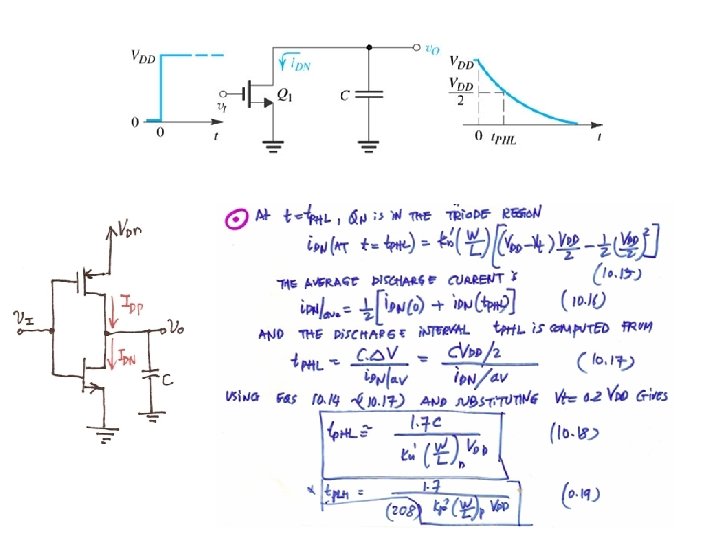 V_DD
0
0
t
v_I
i_DN
Q_1
C
v_O
V_DD
V_DD/2
0 t_PHL
t
V_DD
V_I
I_DP
V_O
I_DN
C
At t = t_PHL, Q_N IS IN THE TRIODE REGION
i_DN (AT t = t_PHL) = k_n' (W/L) [(V_DD - V_t) V_DD/2 - 1/2 (V_DD/2)^2]
(10.15)
THE AVERAGE DISCHARGE CURRENT IS
i_DN/ave = 1/2 [i_DN(0) + i_DN(t_PHL)] (10.16)
AND THE DISCHARGE INTERVAL t_PHL IS COMPUTED FROM
t_PHL = C.ΔV / i_DN/av = CV_DD/2 / i_DN/av (10.17)
USING EQS 10.14 - (10.17) AND SUBSTITUTING Vt = 0.2 V_DD GIVES
t_PHL ≅ 1.7C / k_n' (W/L)_n V_DD (10.18)
t_PLH = 1.7 / k_p' (W/L)_p V_DD (0.19)
(208)